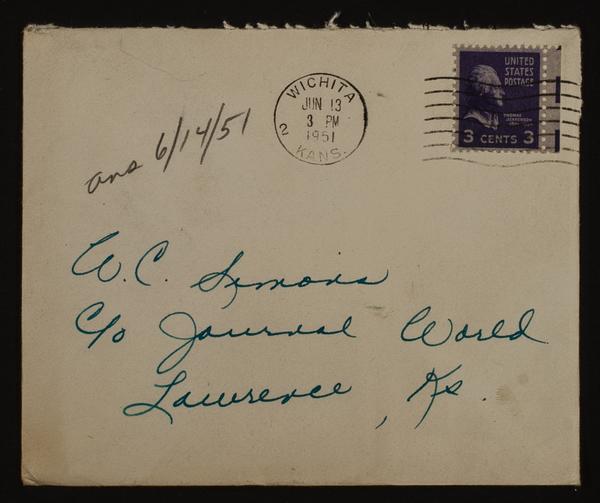 WICHITA
JUN 13
3 PM
1951
2
KANS.
UNITED
STATES
POSTAGE
THOMAS
JEFFERSON
3 CENTS 3
ans 6/14/51
W. C. Simons
c/o Journal World
Lawrence, Ks.